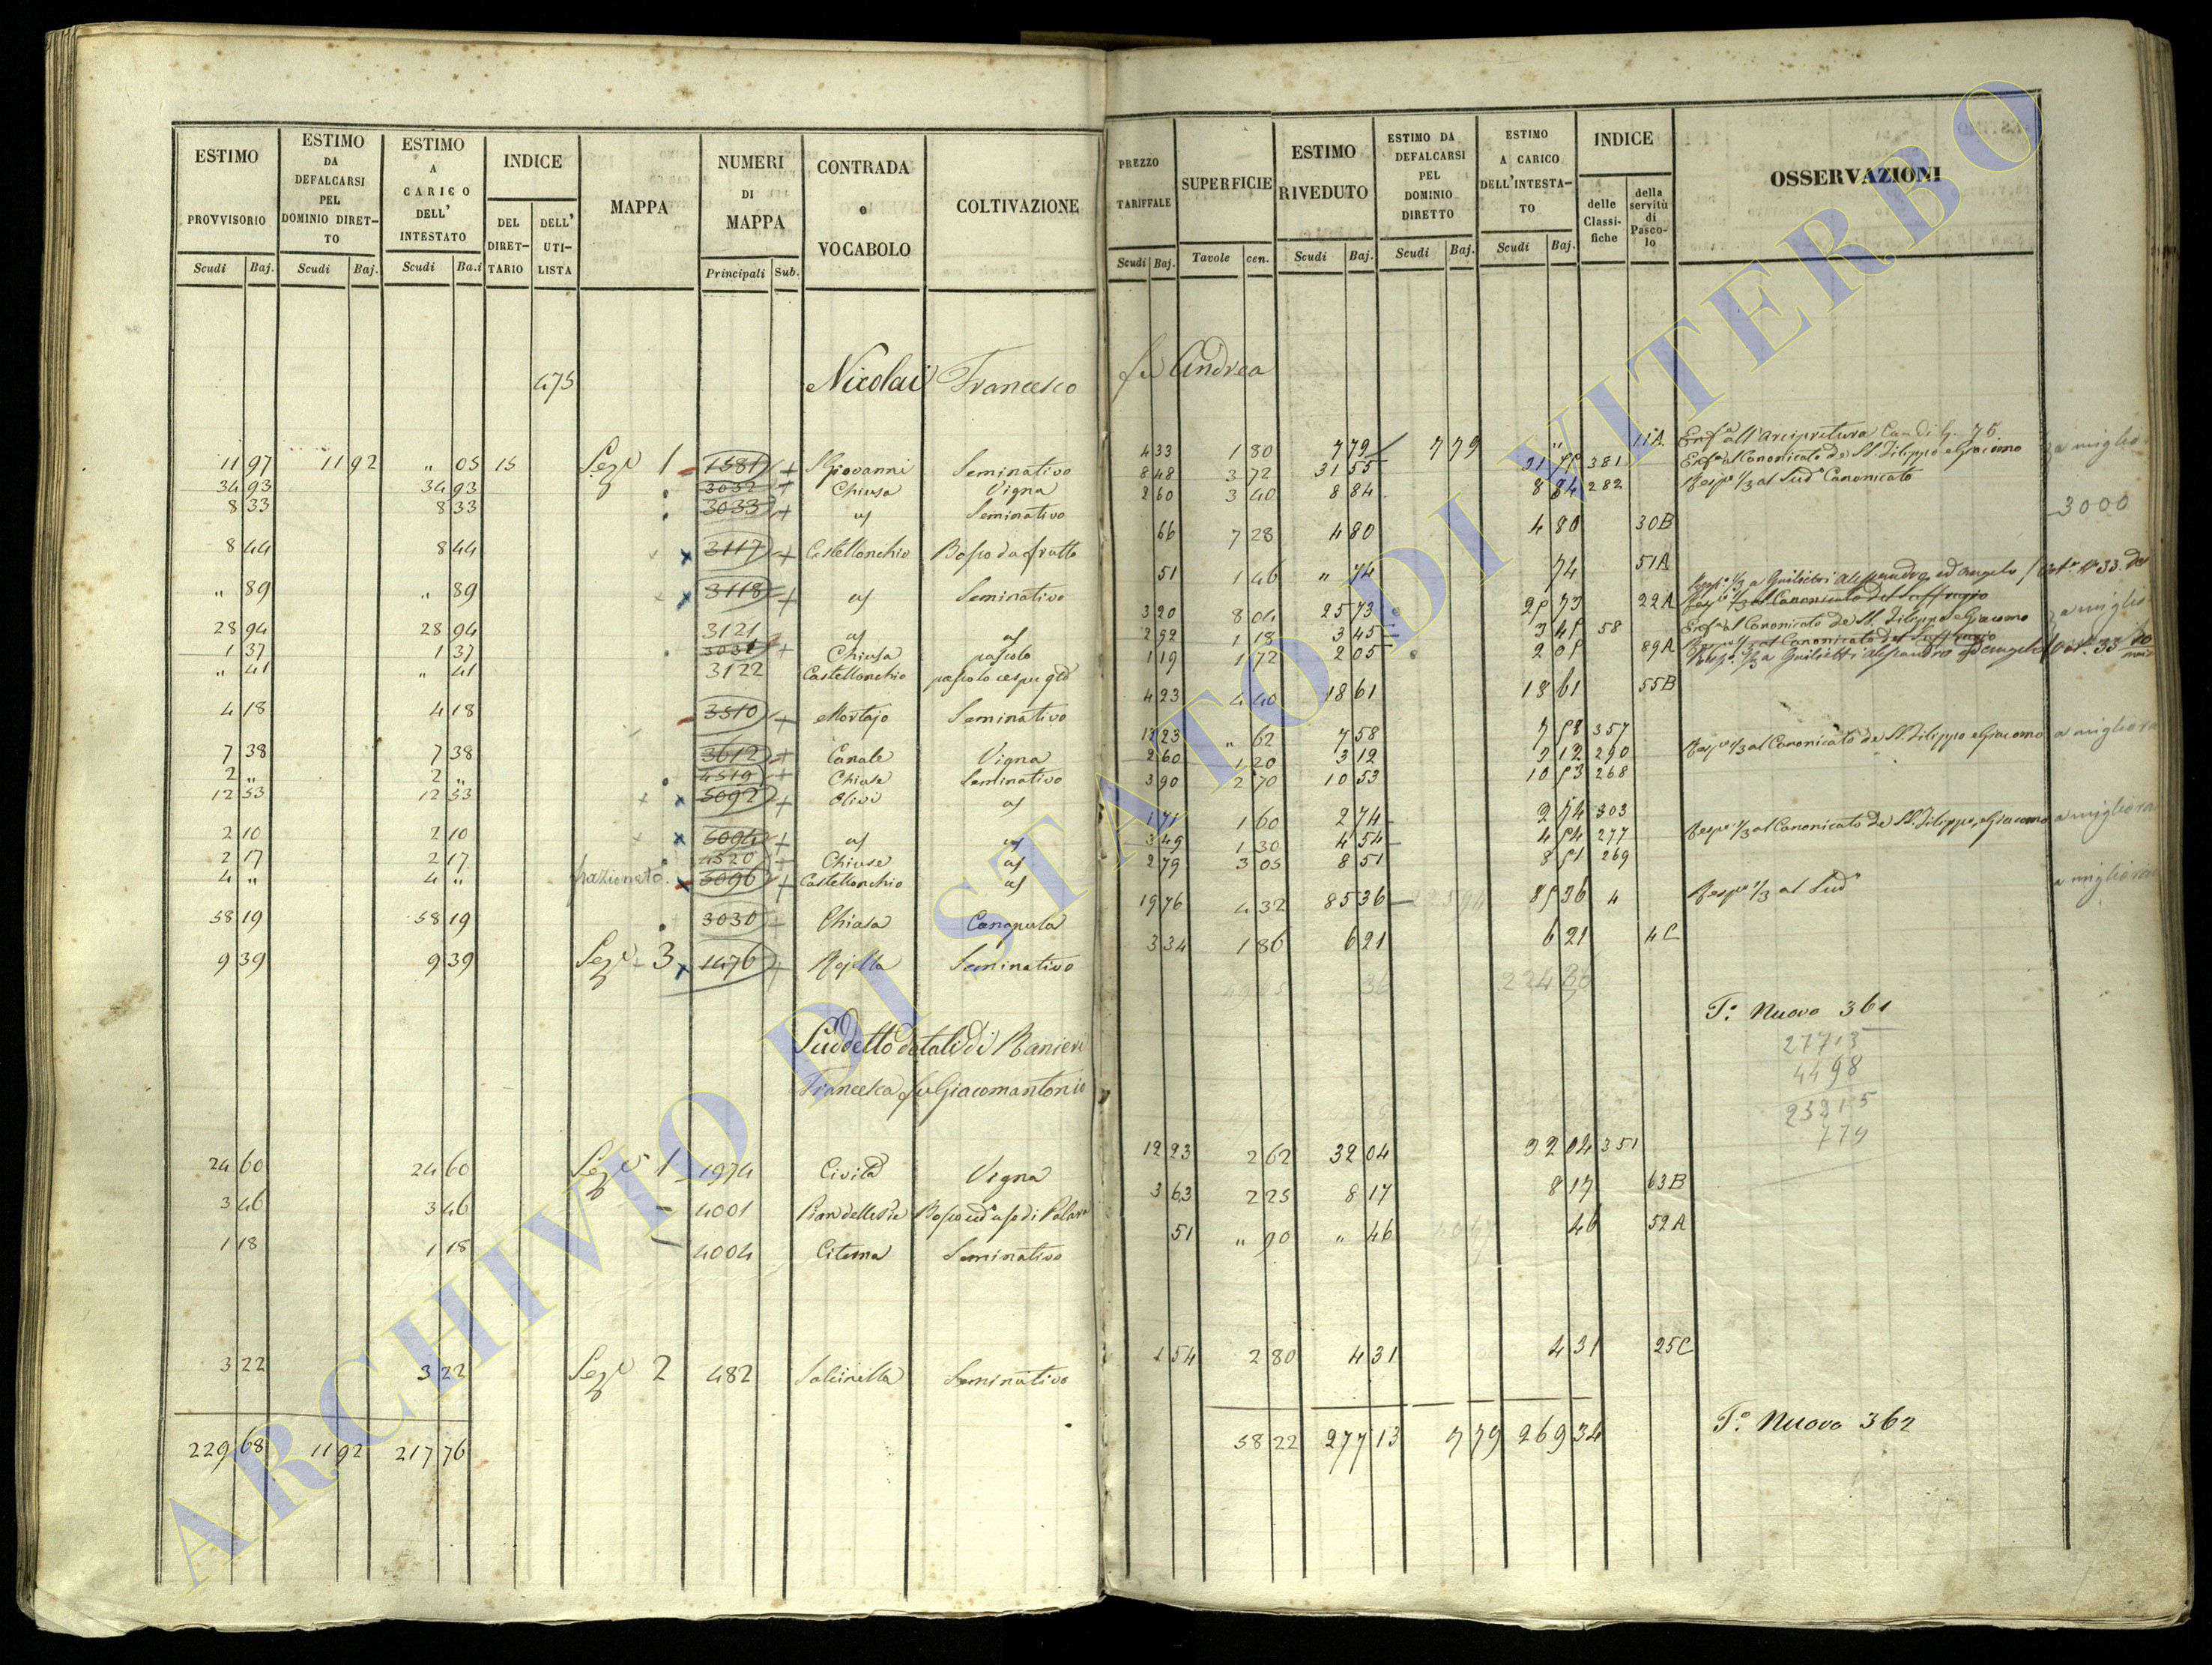 ESTIMO PROVVISORIO | ESTIMO DA DEFALCARSI PEL DOMINIO DIRET-TO | ESTIMO A CARICO DELL' INTESTATO | INDICE DEL DIRET-TARIO | DELL' UTI-LISTA | MAPPA | NUMERI DI MAPPA | CONTRADA o VOCABOLO | COLTIVAZIONE | PREZZO TARIFFALE | SUPERFICIE | ESTIMO RIVEDUTO | ESTIMO DA DEFALCARSI PEL DOMINIO DIRETTO | ESTIMO A CARICO DELL'INTESTA-TO | INDICE delle Classi-fiche | della servitù di Pasco-lo | OSSERVAZIONI
Scudi Baj. | Scudi Baj. | Scudi Ba.i | Principali Sub. | Scudi Baj. | Tavole cen. | Scudi Baj. | Scudi Baj. | Scudi Baj.
475 Nicolai Francesco fu Andrea
11 97 | 11 92 | " 05 | 15 | Sez.e 1 | 1581 | S. Giovanni | Seminativo | 4 33 | 1 80 | 7 79 | 7 79 | " | 11A | Enf.a all'Arcipretura
34 93 | 34 93 | 3032 | Chiusa | Vigna | 8 48 | 3 72 | 31 55 | 31 55 | 381 | Enf.a al Canonicato de SS. Filippo e Giacomo | a miglio
8 33 | 8 33 | 3033 | id | Seminativo | 2 60 | 3 40 | 8 84 | 8 84 | 282 | Resp.e 1/3 al Sud.o Canonicato
3000
8 44 | 8 44 | 3117 | Castellonchio | Bosco da frutto | 66 | 7 28 | 4 80 | 4 80 | 30B
" 89 | " 89 | 3118 | id | Seminativo | 51 | 1 46 | " 74 | 74 | 51A
28 94 | 28 94 | 3121 | id | id | 3 20 | 8 04 | 25 73 | 25 73 | 22A | Resp.e 1/3 a Guilietti Alessandro ed Angelo
Resp.e 1/3 al Canonicato del Suffragio
1 37 | 1 37 | 3031 | Chiusa | pascolo | 2 92 | 1 18 | 3 45 | 3 45 | 58 | Enf.a al Canonicato de SS. Filippo e Giacomo | a miglio
" 41 | " 41 | 3122 | Castellonchio | pascolo cespugl.o | 1 19 | 1 72 | 2 05 | 2 05 | 89A | Resp.e 1/3 al Canonicato del Suffragio
Resp.e 1/3 a Guilietti Alessandro ed Angelo
4 18 | 4 18 | 3510 | Mortajo | Seminativo | 4 23 | 4 40 | 18 61 | 18 61 | 55B
7 38 | 7 38 | 3612 | Canale | Vigna | 12 23 | " 62 | 7 58 | 7 58 | 357 | Resp.e 1/3 al Canonicato de SS. Filippo e Giacomo | a migliora
2 " | 2 " | 4519 | Chiuse | Seminativo | 2 60 | 1 20 | 3 12 | 3 12 | 290
12 53 | 12 53 | 5092 | Olivi | id | 3 90 | 2 70 | 10 53 | 10 53 | 268
2 10 | 2 10 | 5094 | id | id | 1 71 | 1 60 | 2 74 | 2 74 | 303 | Resp.e 1/3 al Canonicato de SS. Filippo, e Giacomo | a migliora
2 17 | 2 17 | 4520 | Chiuse | id | 3 49 | 1 30 | 4 54 | 4 54 | 277
4 " | 4 " | frazionato | 5096 | Castellonchio | id | 2 79 | 3 05 | 8 51 | 8 51 | 269
58 19 | 58 19 | 3030 | Chiusa | Canapula | 19 76 | 4 32 | 85 36 | 85 36 | 4 | Resp.e 1/3 al Sud.o | a migliora
9 39 | 9 39 | Sez.e 3 | 1476 | Rojella | Seminativo | 3 34 | 1 86 | 6 21 | 6 21 | 4C
T.o Nuovo 361
27713
4498
23215
779
Suddetto dotali di Ranieri
Francesca fu Giacomantonio
24 60 | 24 60 | Sez.e 1 | 1974 | Civita | Vigna | 12 23 | 2 62 | 32 04 | 32 04 | 351
3 46 | 3 46 | 4001 | Pian delle Pie | Bosco ced.o uso di Palara | 3 63 | 2 25 | 8 17 | 8 17 | 63B
1 18 | 1 18 | 4004 | Citerna | Seminativo | 51 | " 90 | " 46 | 46 | 52A
3 22 | 3 22 | Sez.e 2 | 482 | Salcinella | Seminativo | 1 54 | 2 80 | 4 31 | 4 31 | 25C
229 68 | 11 92 | 217 76 | 58 22 | 277 13 | 7 79 | 269 34 | T.o Nuovo 362
ARCHIVIO DI STATO DI VITERBO